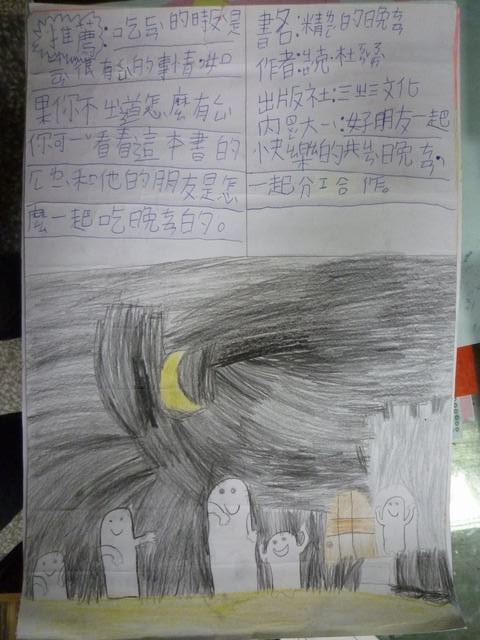 書名:精的晚
作者:杜
出版社:三之三文化
內大:好朋友一起
快樂的共晚
一起分工合作。
推薦:吃的時是
很有的事情。如
果你不知道怎麼有
你可以看看這本書的
和他的朋友是怎
麼一起吃晚的。